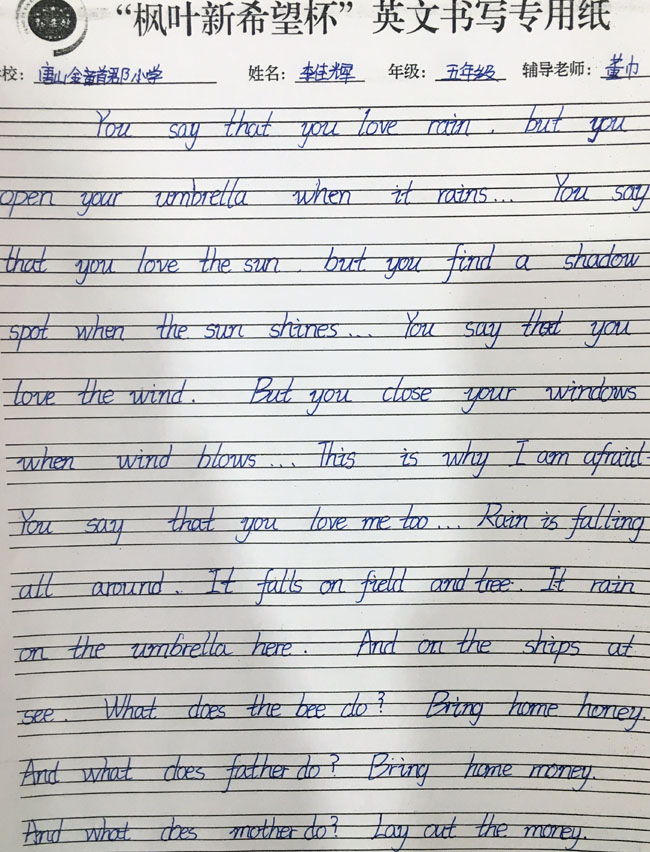 “枫叶新希望杯”英文书写专用纸
校：唐山金番首郡小学 姓名：李佳辉 年级：五年级 辅导老师：董巾
You say that you love rain. but you
open your umbrella when it rains... You say
that you love the sun. but you find a shadow
spot when the sun shines... You say that you
love the wind. But you close your windows
when wind blows... This is why I am afraid.
You say that you love me too... Rain is falling
all around. It falls on field and tree. It rain
on the umbrella here. And on the ships at
see. What does the bee do? Bring home honey.
And what does father do? Bring home money.
And what does mother do? Lay out the money.